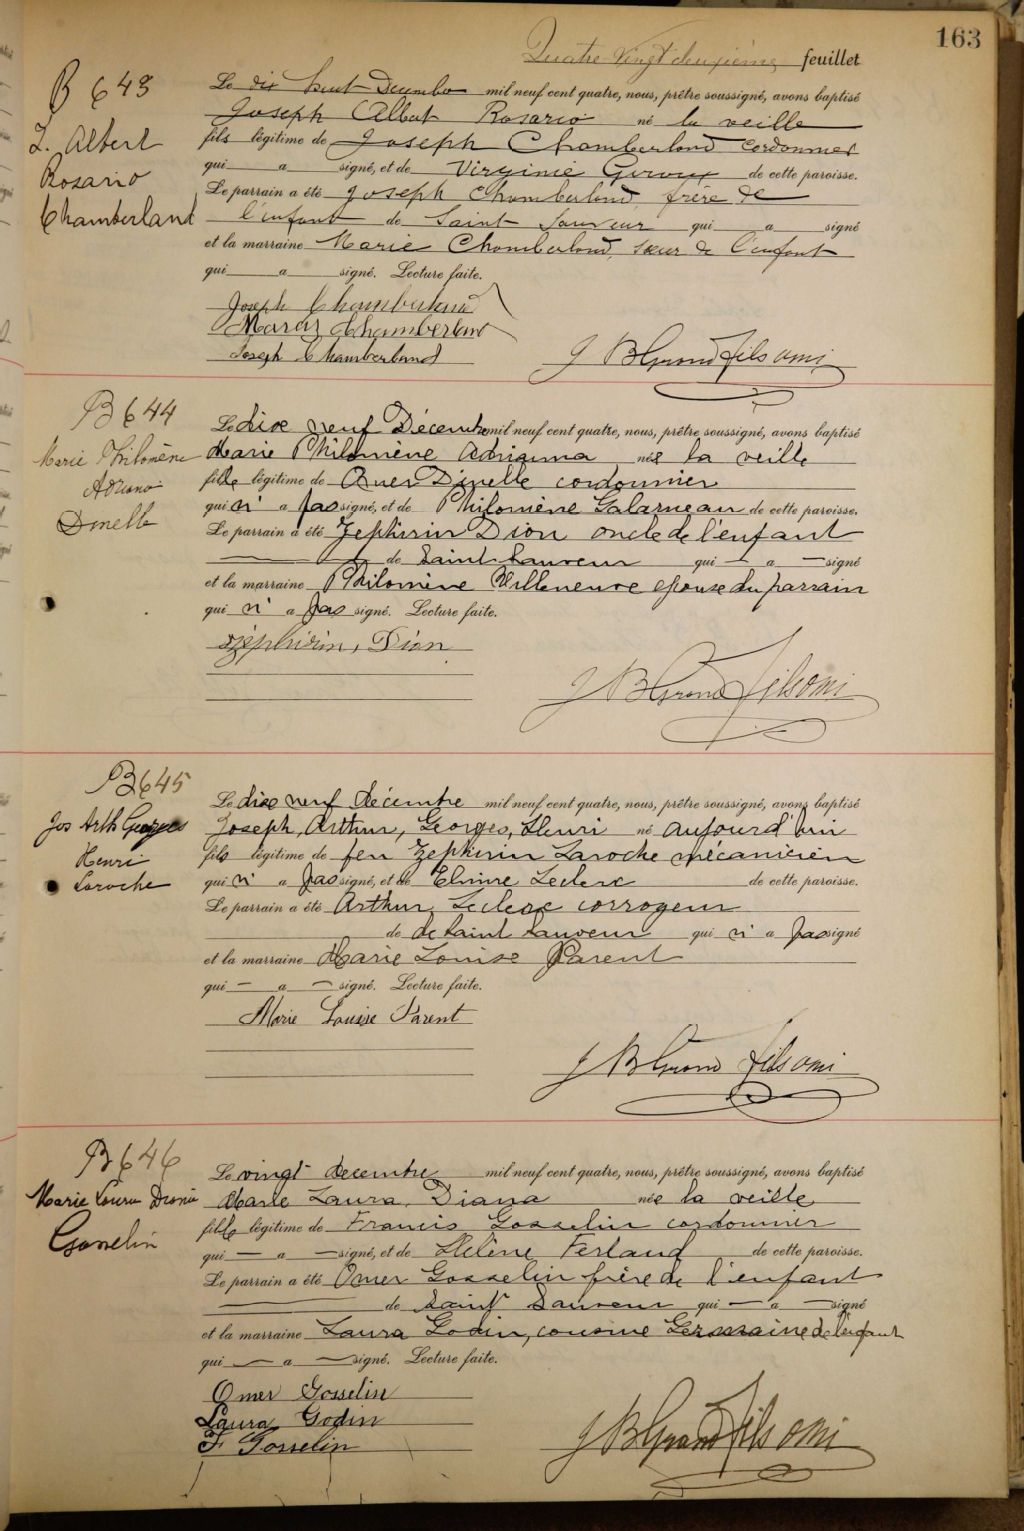 163
Quatre Vingt deuxième feuillet
B 643
J. Albert
Rosario
Chamberland
Le dix huit Decembre mil neuf cent quatre, nous, prêtre soussigné, avons baptisé
Joseph Albert Rosario né la veille
fils légitime de Joseph Chamberland cordonnier
qui a signé, et de Virginie Giroux de cette paroisse.
Le parrain a été Joseph Chamberland, frère de
l'enfant de Saint Sauveur qui a signé
et la marraine Marie Chamberland, sœur de l'enfant
qui a signé. Lecture faite.
Joseph Chamberland
Maria Chamberland
Joseph Chamberland
J B Grandfils omi
B 644
Marie Philomène
Adriana
Dinelle
Le dix neuf Décembre mil neuf cent quatre, nous, prêtre soussigné, avons baptisé
Marie Philomène Adrianna née la veille
fille légitime de Dinelle cordonnier
qui n' a pas signé, et de Philomène Galarneau de cette paroisse.
Le parrain a été Zephirin Dion oncle de l'enfant
de Saint Sauveur qui — a — signé
et la marraine Philomène Villeneuve epouse du parrain
qui n' a pas signé. Lecture faite.
Zéphirin, Dion
J B Grandfils omi
B 645
Jos Arth Georges
Henri
Laroche
Le dix neuf décembre mil neuf cent quatre, nous, prêtre soussigné, avons baptisé
Joseph, Arthur, Georges, Henri né aujourd'hui
fils légitime de feu Zephirin Laroche mécanicien
qui n' a pas signé, et de Elmire Leclerc de cette paroisse.
Le parrain a été Arthur Leclerc corroyeur
de de Saint Sauveur qui n' a pas signé
et la marraine Marie Louise Parent
qui — a — signé. Lecture faite.
Marie Louise Parent
J B Grandfils omi
B 646
Marie Laura Diana
Gosselin
Le vingt decembre mil neuf cent quatre, nous, prêtre soussigné, avons baptisé
Marie Laura Diana née la veille
fille légitime de Francis Gosselin cordonnier
qui — a — signé, et de Hélène Ferland de cette paroisse.
Le parrain a été Omer Gosselin frère de l'enfant
de Saint Sauveur qui — a — signé
et la marraine Laura Godin, cousine Germaine de l'enfant
qui — a — signé. Lecture faite.
Omer Gosselin
Laura Godin
F Gosselin
J B Grandfils omi